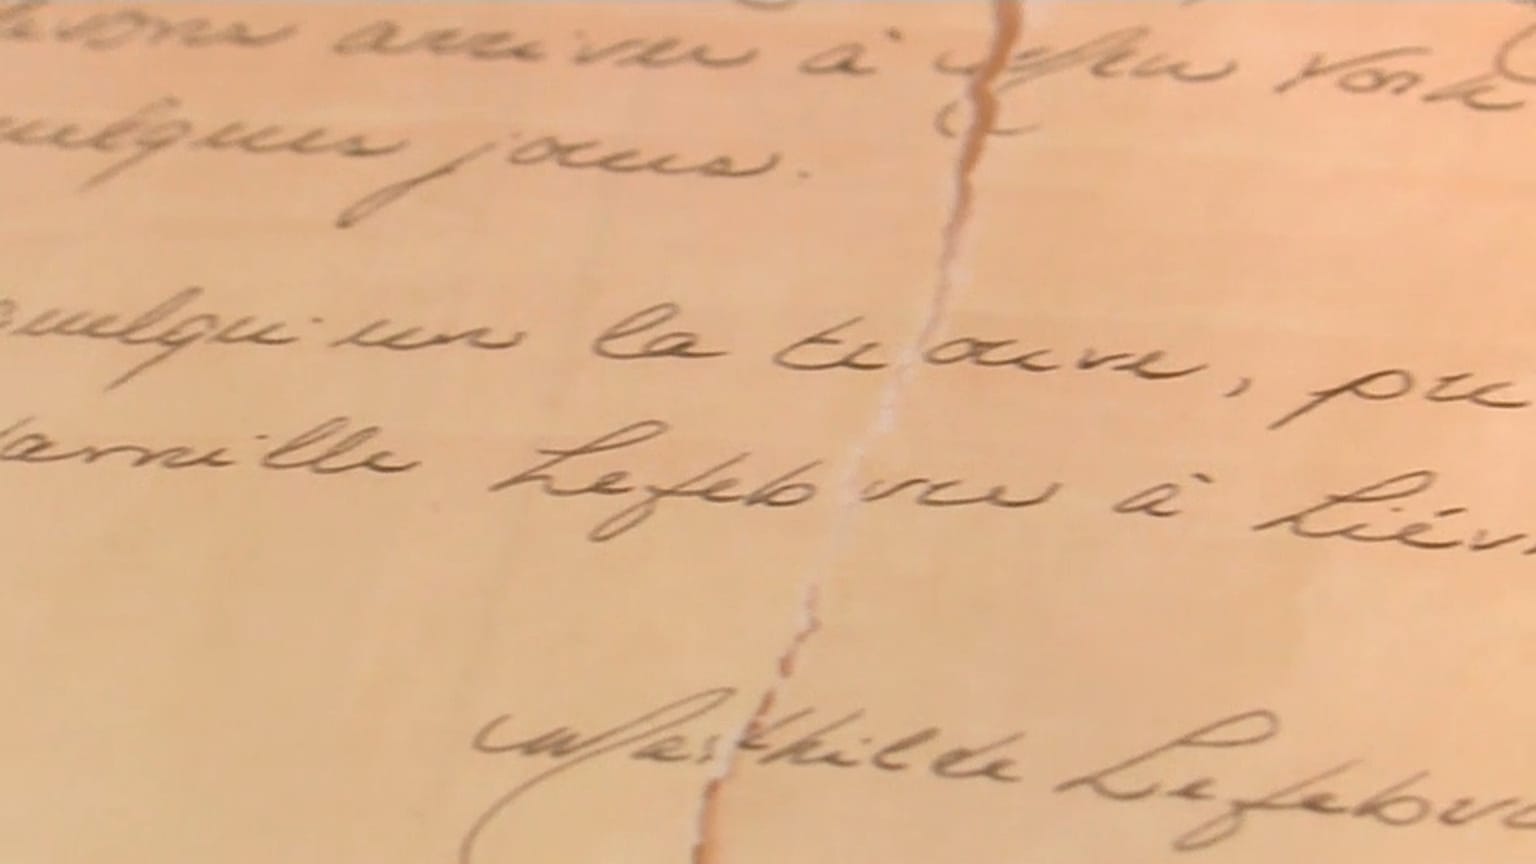 devons arriver à New York
quelques jours.
quelqu'un la trouve,
famille Lefebvre à Liév
Mathilde Lefebvre